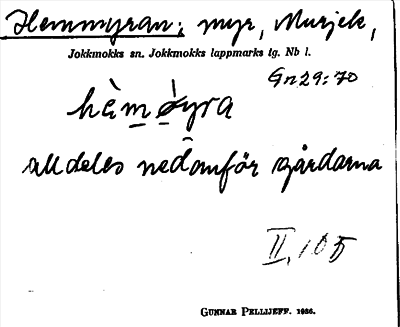 Hemmyran; myr, Murjek,
Jokkmokks sn. Jokkmokks lappmarks tg. Nb l.
Gn 29:70
alldeles nedanför gårdarna
II, 105
GUNNAR PELLIJEFF. 1986.